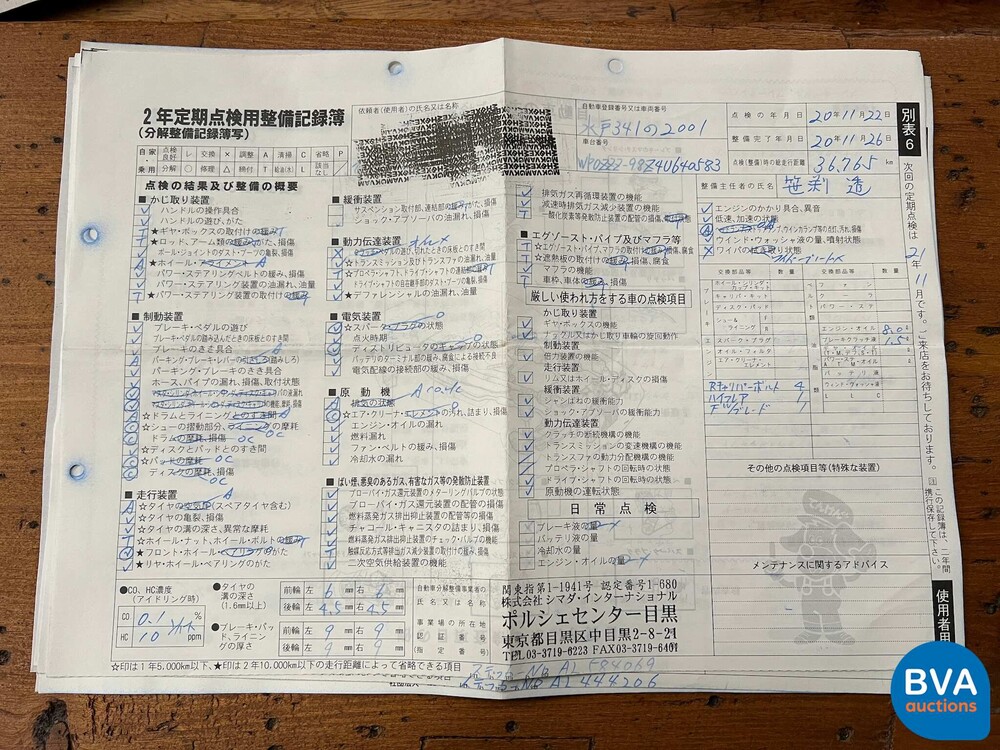 2年定期点検用整備記録簿
(分解整備記録簿写)
依頼者(使用者)の氏名又は名称
自動車登録番号又は車両番号
水戸341の2001
車台番号
WP0ZZZ-98Z4U640583
点検の年月日 20年11月22日
整備完了年月日 20年11月26日
点検(整備)時の総走行距離 36,765 km
整備主任者の氏名
別表6
次回の定期点検は 21年11月です。ご来店をお待ちしております。
この記録簿は、二年間携行保存して下さい。
使用者用
自家乗用 点検良好 レ 交換 × 調整 A 清掃 C 省略 P
分解 ○ 修理 △ 締付 T 給油(水) L 該当なし /
点検の結果及び整備の概要
■かじ取り装置
ハンドルの操作具合
ハンドルの遊び、がた
★ギヤ・ボックスの取付けの緩み
★ロッド、アーム類の緩み、がた、損傷
ボール・ジョイントのダスト・ブーツの亀裂、損傷
★ホイール・アライメント
パワー・ステアリングベルトの緩み、損傷
パワー・ステアリング装置の油漏れ、油量
★パワー・ステアリング装置の取付けの緩み
■制動装置
ブレーキ・ペダルの遊び
ブレーキ・ペダルの踏み込んだときの床板とのすき間
ブレーキのきき具合
パーキング・ブレーキ・レバーの引きしろ(踏みしろ)
パーキング・ブレーキのきき具合
ホース、パイプの漏れ、損傷、取付状態
☆ドラムとライニングとのすき間
☆シューの摺動部分、ライニングの摩耗
ドラムの摩耗、損傷
☆ディスクとパッドとのすき間
☆パッドの摩耗
ディスクの摩耗、損傷
■走行装置
☆タイヤの空気圧(スペアタイヤ含む)
☆タイヤの亀裂、損傷
☆タイヤの溝の深さ、異常な摩耗
★ホイール・ナット、ホイール・ボルトの緩み
★フロント・ホイール・ベアリングのがた
★リヤ・ホイール・ベアリングのがた
■緩衝装置
サスペンション取付部、連結部の緩み、がた、損傷
ショック・アブソーバの油漏れ、損傷
■動力伝達装置
☆トランスミッション及びトランスファの油漏れ、油量
☆プロペラ・シャフト、ドライブ・シャフトの連結部の緩み
ドライブ・シャフトの自在継手部のダスト・ブーツの亀裂、損傷
★デファレンシャルの油漏れ、油量
■電気装置
☆スパーク・プラグの状態
点火時期
ディストリビュータのキャップの状態
バッテリのターミナル部の緩み、腐食による接続不良
電気配線の接続部の緩み、損傷
■原動機
排気の状態
☆エア・クリーナ・エレメントの汚れ、詰まり、損傷
エンジン・オイルの漏れ
燃料漏れ
ファン・ベルトの緩み、損傷
冷却水の漏れ
■ばい煙、悪臭のあるガス、有害なガス等の発散防止装置
ブローバイ・ガス還元装置のメターリングバルブの状態
ブローバイ・ガス還元装置の配管の損傷
燃料蒸発ガス排出抑止装置の配管等の損傷
チャコール・キャニスタの詰まり、損傷
燃料蒸発ガス排出抑止装置のチェック・バルブの機能
触媒反応方式等排出ガス減少装置の取付けの緩み、損傷
二次空気供給装置の機能
排気ガス再循環装置の機能
減速時排気ガス減少装置の機能
一酸化炭素等発散防止装置の配管の損傷、取付状態
■エグゾースト・パイプ及びマフラ等
☆エグゾースト・パイプ、マフラの取付けの緩み、損傷、腐食
☆遮熱板の取付けの緩み、損傷、腐食
マフラの機能
車枠、車体の緩み、損傷
厳しい使われ方をする車の点検項目
かじ取り装置
ギヤ・ボックスの機能
ナックル又はかじ取り車輪の旋回動作
制動装置
倍力装置の機能
走行装置
リム又はホイール・ディスクの損傷
緩衝装置
シャシばねの緩衝能力
ショック・アブソーバの緩衝能力
動力伝達装置
クラッチの断続機構の機能
トランスミッションの変速機構の機能
トランスファの動力分配機構の機能
プロペラ・シャフトの回転時の状態
ドライブ・シャフトの回転時の状態
原動機の運転状態
日常点検
ブレーキ液の量
バッテリ液の量
冷却水の量
エンジン・オイルの量
エンジンのかかり具合、異音
低速、加速の状態
ウインド・ウォッシャ液の量、噴射状態
ワイパの拭き取り状態
交換部品等 数量 交換部品等 数量
ホイール・シリンダ・カップ、キット
キャリパ・キット
ディスク・パッド
シュー&ライニング
スパーク・プラグ
オイル・フィルタ
エア・クリーナ・エレメント
エンジン・オイル 8.0
ブレーキ・クラッチ液
バッテリ液
L L C
その他の点検項目等(特殊な装置)
メンテナンスに関するアドバイス
●CO、HC濃度
(アイドリング時)
CO 0.1 %
HC 10 ppm
●タイヤの溝の深さ
(1.6mm以上)
前輪 左 6 mm 右 6 mm
後輪 左 4.5 mm 右 4.5 mm
●ブレーキ・パッド、ライニングの厚さ
前輪 左 9 mm 右 9 mm
後輪 左 9 mm 右 9 mm
自動車分解整備事業者の氏名又は名称
事業場の所在地
認証番号
(指定番号)
関東指第1-1941号 認定番号1-680
株式会社シマダ・インターナショナル
ポルシェセンター目黒
東京都目黒区中目黒2-8-21
TEL03-3719-6223 FAX03-3719-6401
☆印は1年5,000km以下、★印は2年10,000km以下の走行距離によって省略できる項目
ステッカーNO AL 584069
AL 444206
BVA
auctions